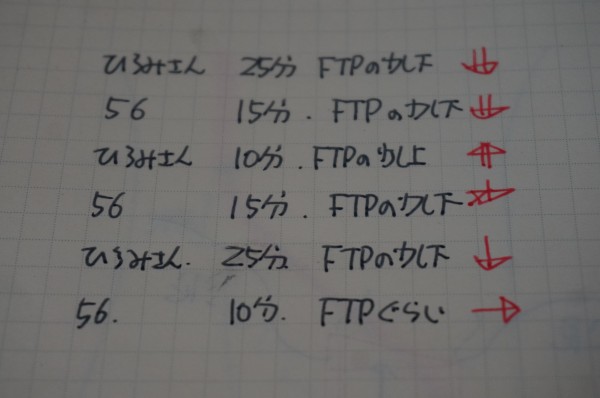 ひろみさん 25分 FTPの少し下 ⇓
56 15分. FTPの少し下 ⇓
ひろみさん 10分. FTPの少し上 ⇑
56 15分. FTPの少し下
ひろみさん. 25分. FTPの少し下 ↓
56. 10分. FTPぐらい →